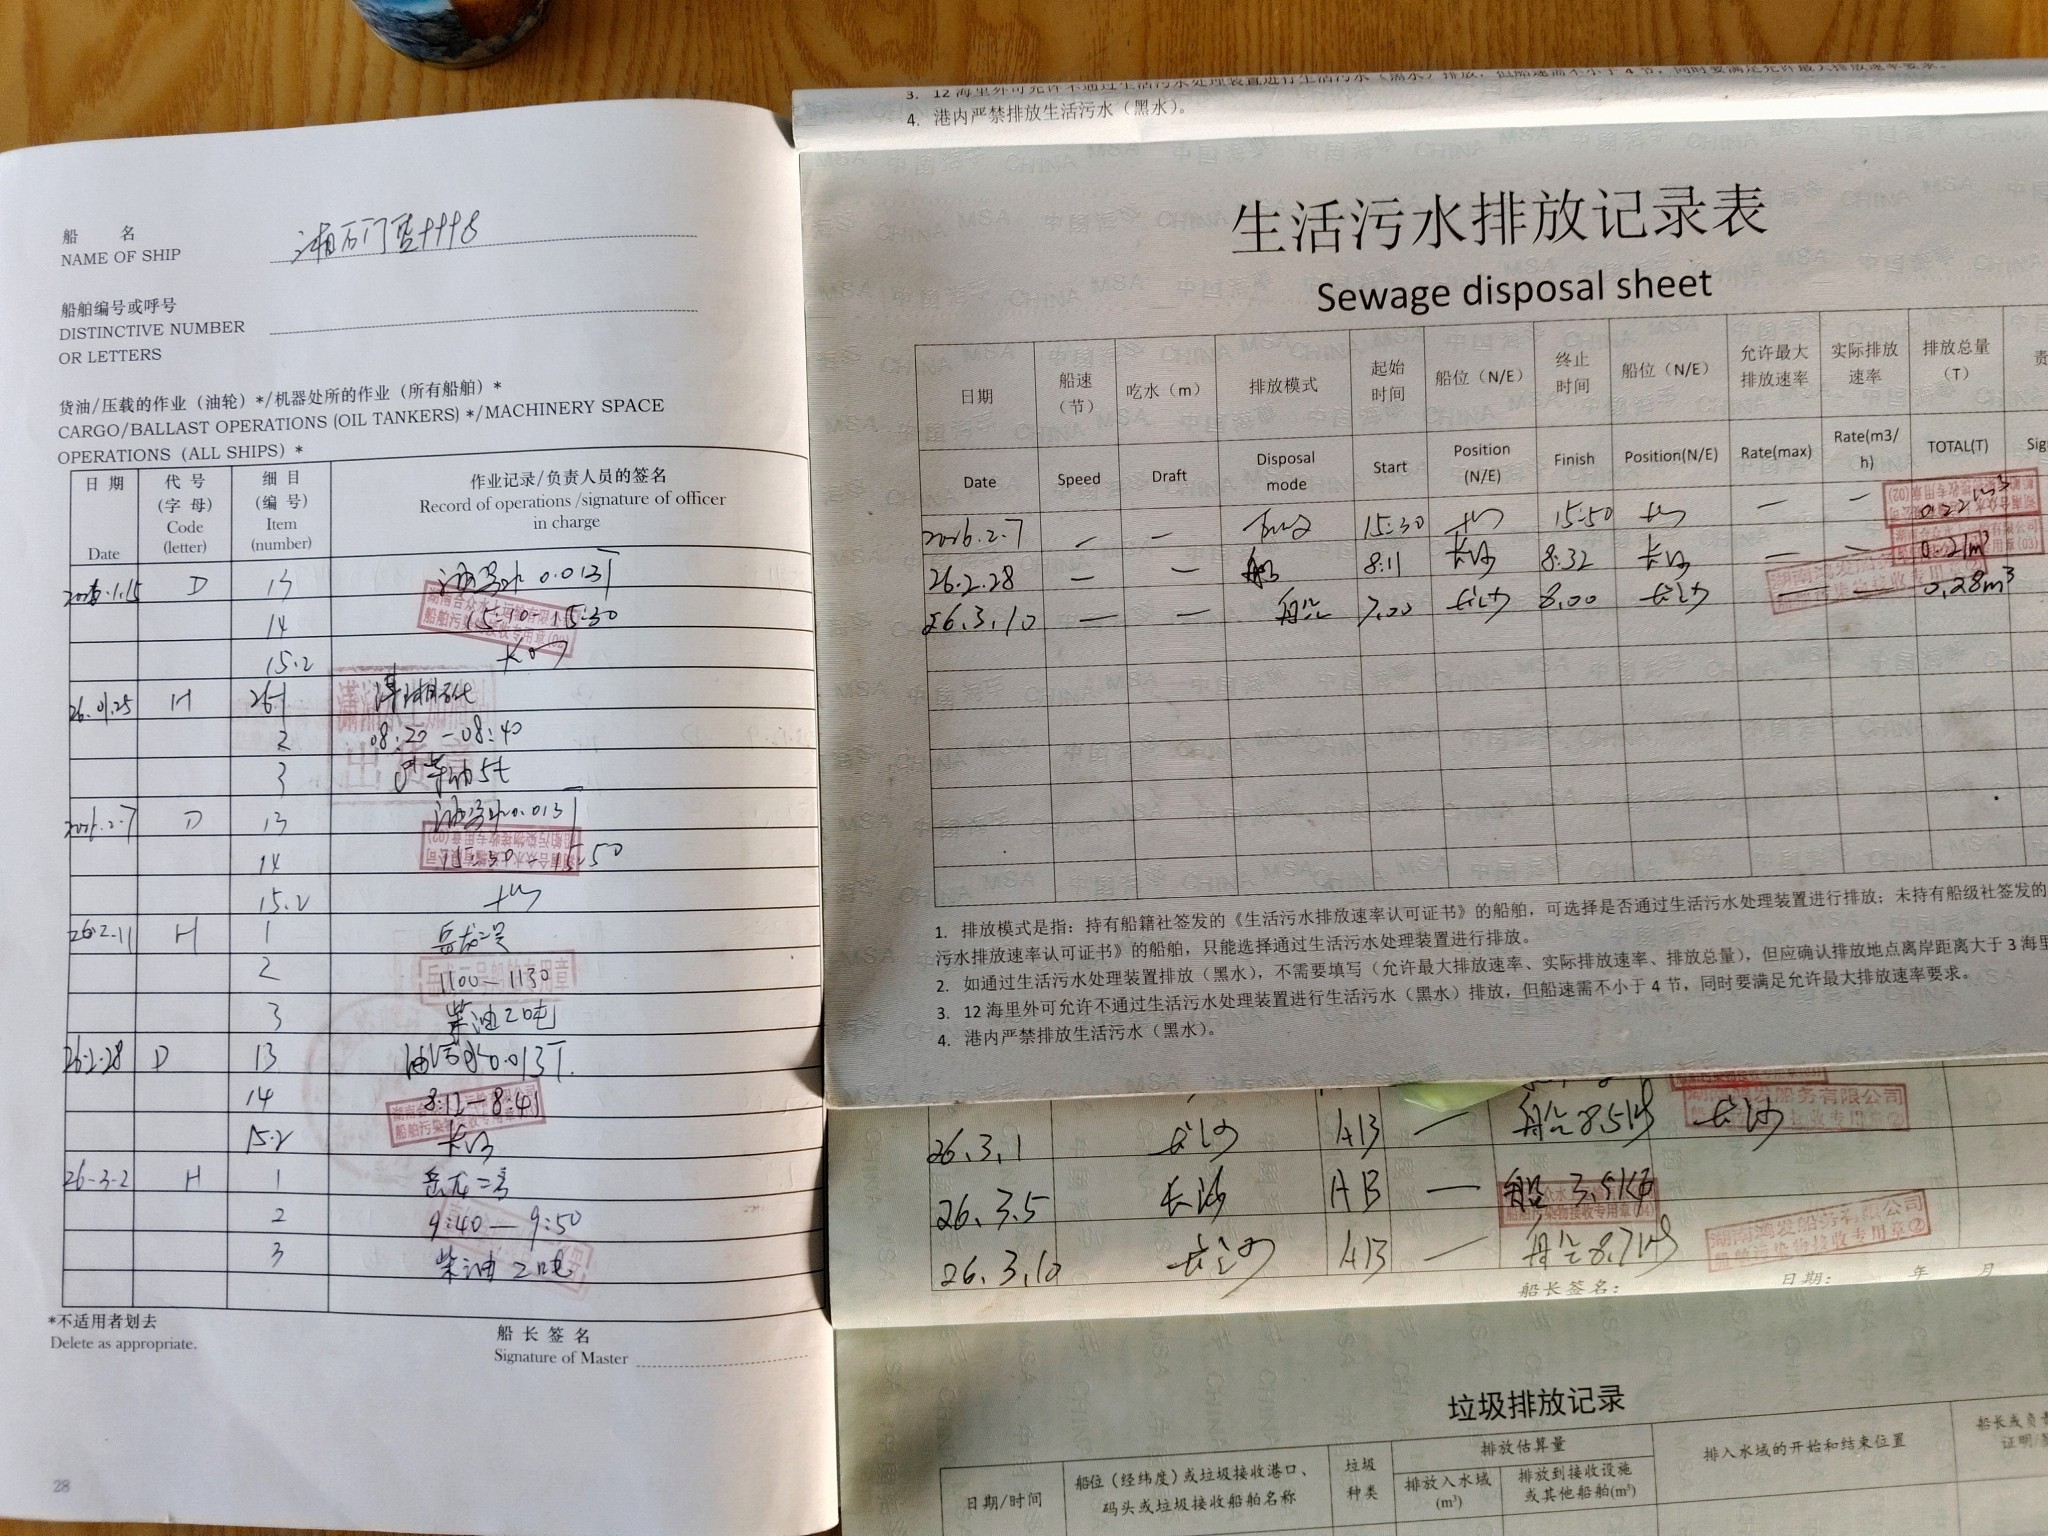 船 名
NAME OF SHIP
船舶编号或呼号
DISTINCTIVE NUMBER
OR LETTERS
货油/压载的作业（油轮）*/机器处所的作业（所有船舶）*
CARGO/BALLAST OPERATIONS (OIL TANKERS) */MACHINERY SPACE
OPERATIONS (ALL SHIPS) *
日 期 代 号 细 目 作业记录/负责人员的签名
(字 母) (编 号) Record of operations /signature of officer
Code Item in charge
Date (letter) (number)
2026.1.15 D 13 油污水 0.013T
14 15:10-15:30
15.2 长沙
26.01.25 H 26.1
2 08:20-08:40
3 柴油5t
2026.2.7 D 13 油污水0.013T
14 15:50
15.2 长沙
26.2.11 H 1 岳龙二号
2 1100-1130
3 柴油2吨
26.2.28 D 13 油污水0.013T.
14 8:12-8:41
15.2 长沙
26-3-2 H 1 岳龙二号
2 9:40-9:50
3 柴油 2吨
*不适用者划去
Delete as appropriate.
船 长 签 名
Signature of Master
28
3. 12海里外可允许不通过生活污水处理装置进行生活污水（黑水）排放，但船速需不小于4节，同时要满足允许最大排放速率要求。
4. 港内严禁排放生活污水（黑水）。
生活污水排放记录表
Sewage disposal sheet
日期 船速（节） 吃水（m） 排放模式 起始时间 船位（N/E） 终止时间 船位（N/E） 允许最大排放速率 实际排放速率 排放总量（T） 责
Date Speed Draft Disposal mode Start Position (N/E) Finish Position(N/E) Rate(max) Rate(m3/h) TOTAL(T) Sig
2026.2.7 — — 15:30 长沙 15:50 长沙 — — 0.22m³
26.2.28 — — 船 8:11 长沙 8:32 长沙 — — 0.21m³
26.3.10 — — 船 7.00 长沙 8.00 长沙 — — 0.28m³
1. 排放模式是指：持有船籍社签发的《生活污水排放速率认可证书》的船舶，可选择是否通过生活污水处理装置进行排放；未持有船级社签发的
污水排放速率认可证书》的船舶，只能选择通过生活污水处理装置进行排放。
2. 如通过生活污水处理装置排放（黑水），不需要填写（允许最大排放速率、实际排放速率、排放总量），但应确认排放地点离岸距离大于3海里
3. 12海里外可允许不通过生活污水处理装置进行生活污水（黑水）排放，但船速需不小于4节，同时要满足允许最大排放速率要求。
4. 港内严禁排放生活污水（黑水）。
26.3.1 长沙 AB — 船 8.5kg 长沙
26.3.5 长沙 AB — 船 3.5kg
26.3.10 长沙 AB — 船 8.7kg
湖南鸿发船务有限公司
船舶污染物接收专用章②
船长签名： 日期： 年 月
垃圾排放记录
日期/时间 船位（经纬度）或垃圾接收港口、码头或垃圾接收船舶名称 垃圾种类 排放估算量 排入水域的开始和结束位置
排放入水域(m³) 排放到接收设施或其他船舶(m³)